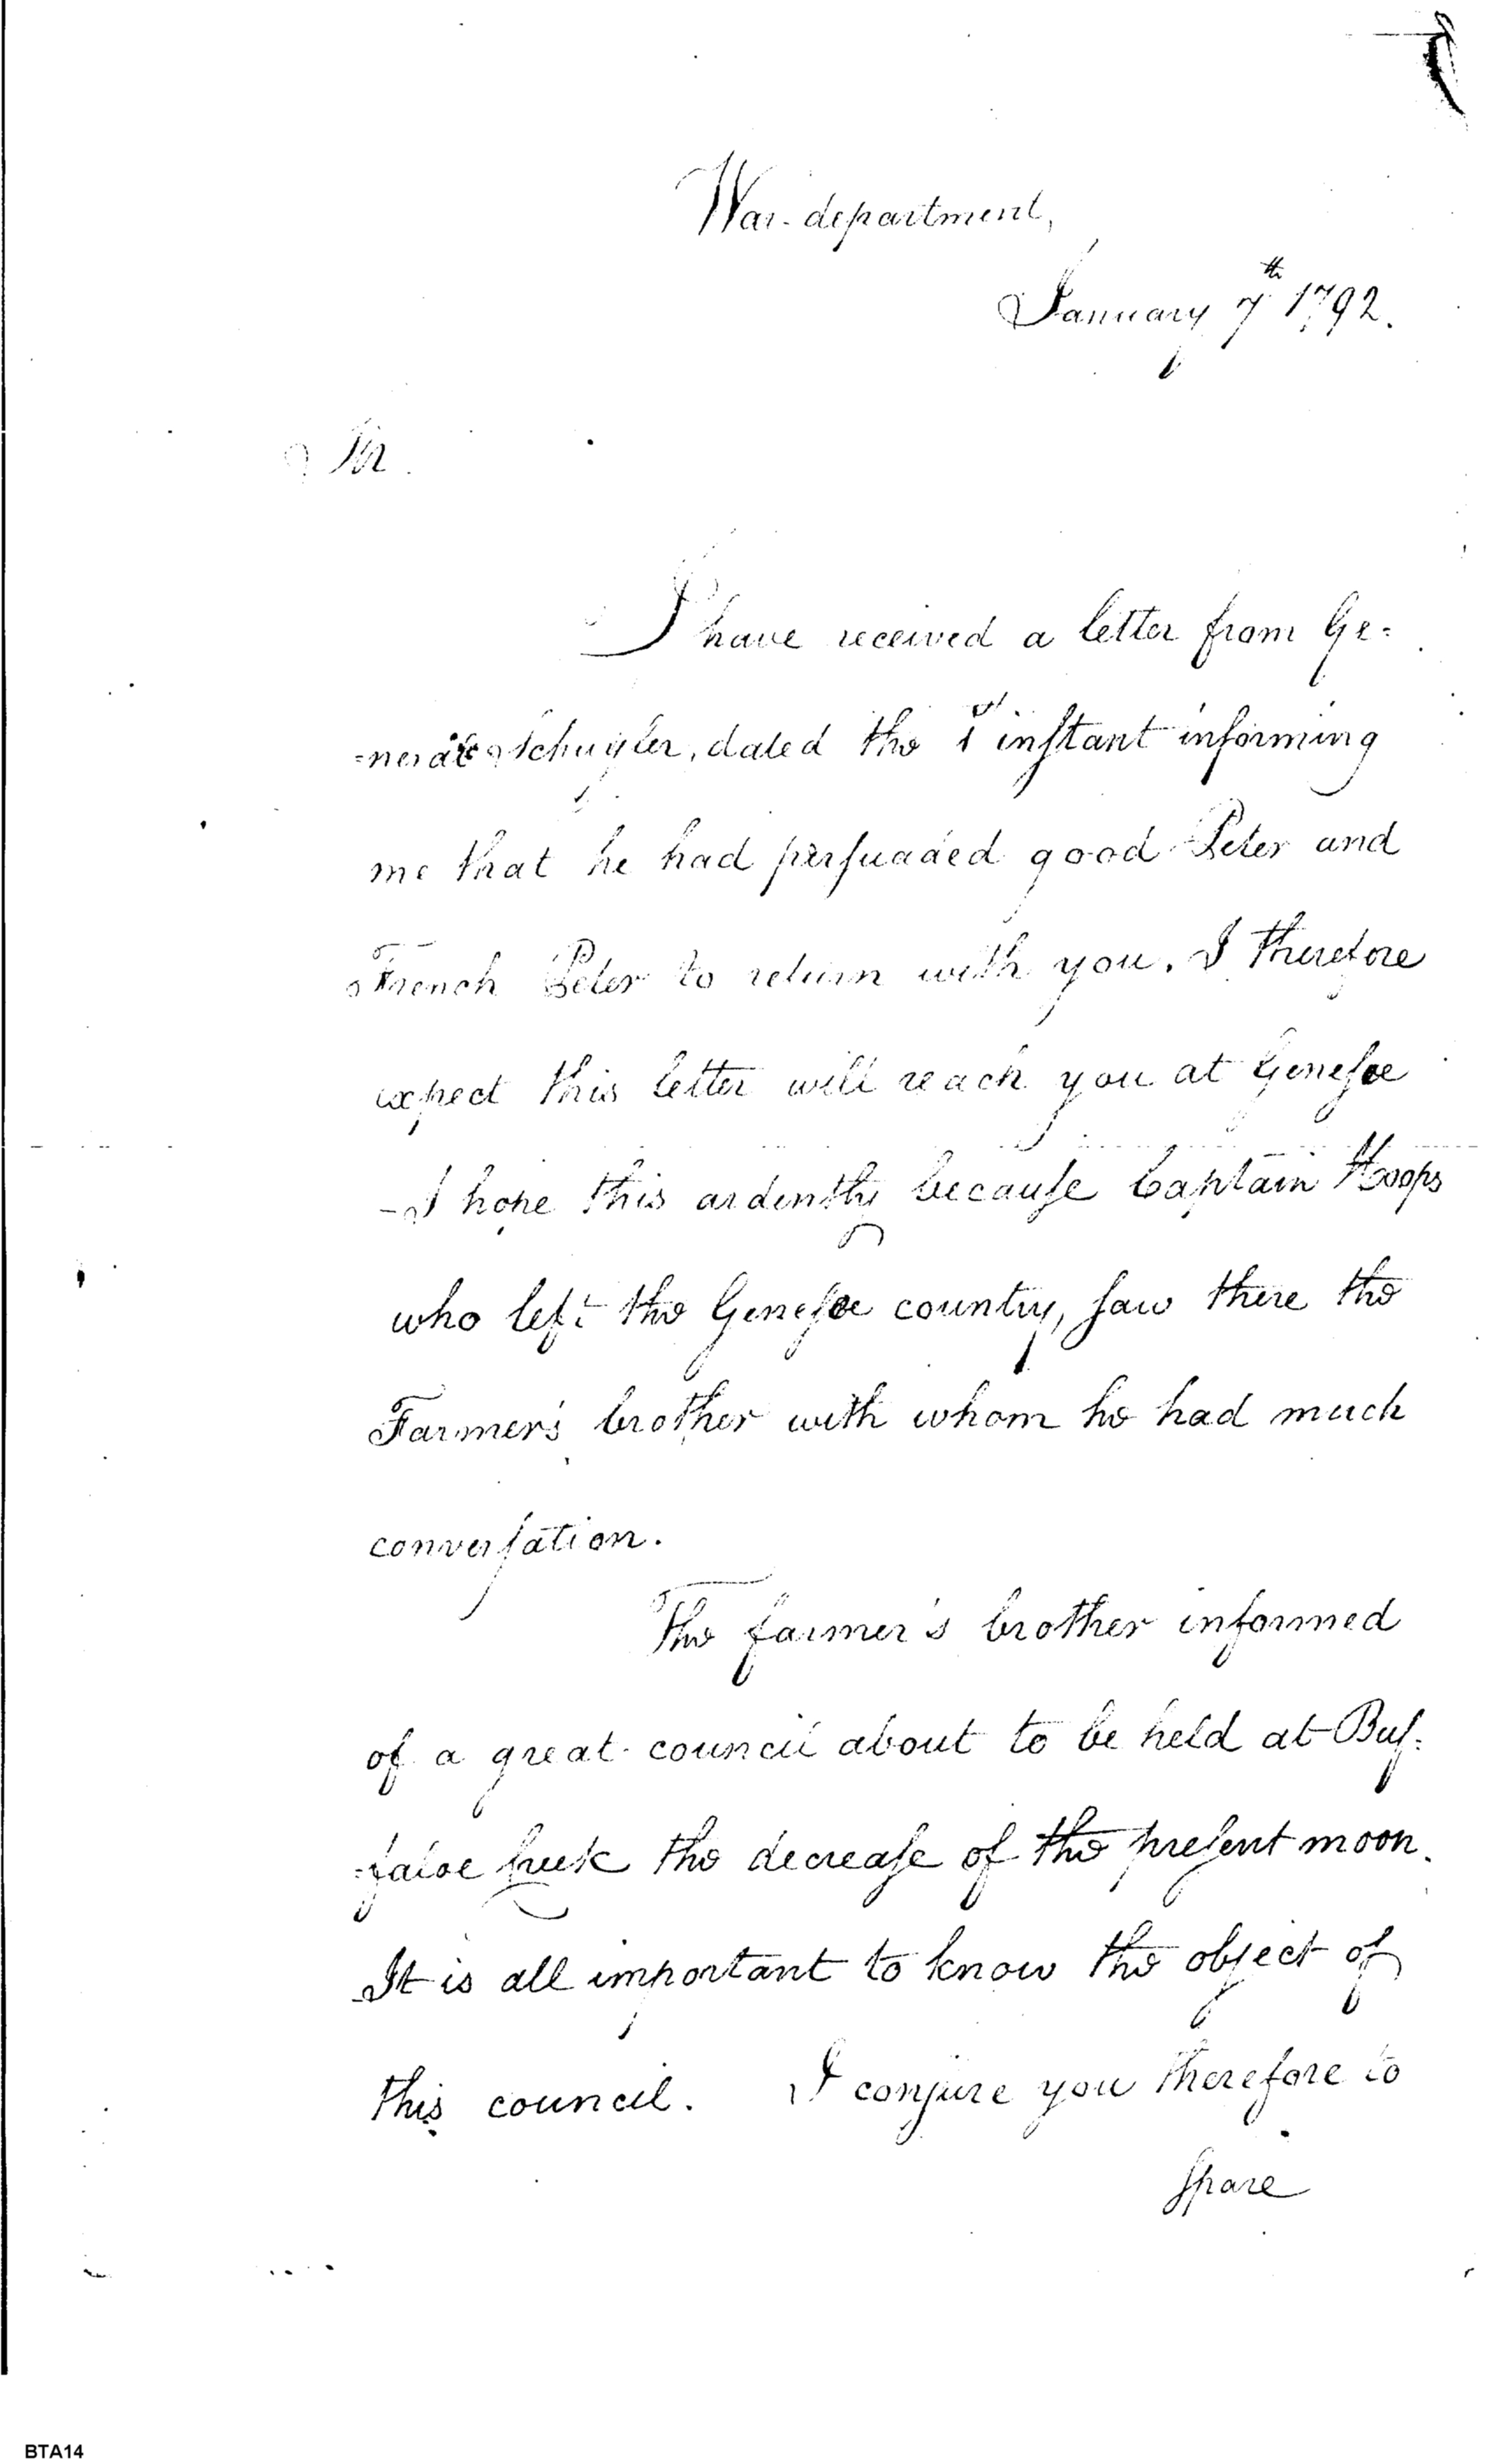 War-department,
January 7th 1792.
Sir.
I have received a letter from Ge=
=neral Schuyler, dated the 1st. instant informing
me that he had persuaded good Peter and
French Peter to return with you. I therefore
expect this letter will reach you at Genesee
- I hope this ardently because Captain Hoops
who left the Genesee country, saw there the
Farmer's brother with whom he had much
conversation.
The farmer's brother informed
of a great council about to be held at Buf=
=faloe Creek the decrease of the present moon.
It is all important to know the object of
this council. I conjure you therefore to
spare
BTA14